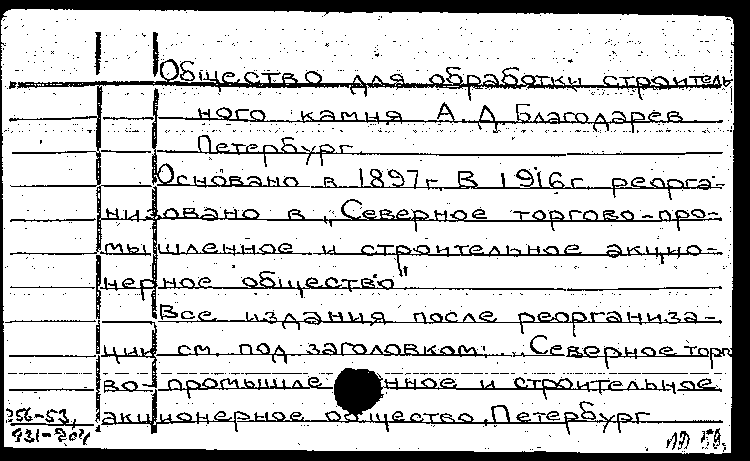 Общество для обработки строитель
ного камня А. Д. Благодарев
Петербург
Основано в 1897г. В 1916г. реорга-
низовано в „Северное торгово-про-
мышленное и строительное акцио-
нерное общество"
Все издания после реорганиза-
ции см. под заголовком: „Северное торго
во-промышленное и строительное
акционерное общество, Петербург
256-53,